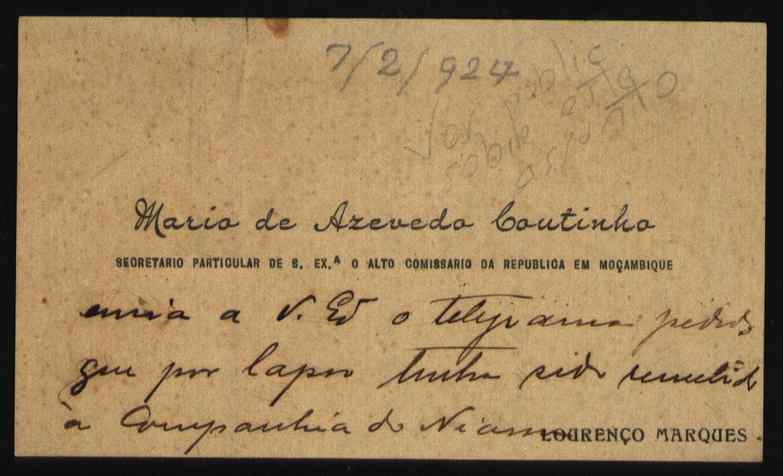 7/2/924
Vai public
sobre esta
assunto
Mario de Azevedo Coutinho
SECRETARIO PARTICULAR DE S. EX.ª O ALTO COMISSARIO DA REPUBLICA EM MOÇAMBIQUE
envia a V. Exª o telegrama pedido
que por lapso tinha sido remetido
à Companhia do
LOURENÇO MARQUES.